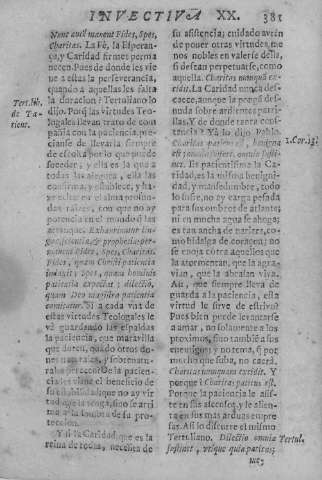 INVECTIVA XX. 381
Nunc autē manent Fides, Spes,
Charitas. La Fè, la Esperan-
ça, y Caridad firmes perma
necen. Pues de donde les vie
ne a estas la perseverancia,
quando a aquellas les falta
la duracion? Tertuliano lo
dijo. Porq̃ las virtudes Teo-
logales llevan trato de com
pañia con la paciencia, pre-
cianse de llevarla siempre
de escolta por lo que puede
suceder; y ella es la que a
todas las assegura, ella las
confirma, y establece, y ha-
ze echar en el alma profun-
das raìzes, con que no ay
potencia en el mundo q̃ las
arranque.
manent Fides, Spes, Charitas.
Fides, quam Christi patientia
induxit; Spes, quam hominis
patientia expectat; dilectio,
quam Deo magistro patientia
comitatur. Si a cada vna de
estas virtudes Teologales le
và guardando las espaldas
la paciencia, que maravilla
que duren, quādo otros do-
nes naturales, y sobrenatu-
rales perecen? De la pacien-
cia les viene el beneficio de
su estabilidad, no ay virtud
que la tenga, sino se arri-
ma a la sombra de su pro-
teccion.
Y si la Caridad, que es la
reina de todas, necessita de
Tert. lib.
de Pa-
tient.
su asistencia; cuidado avrèn
de poner otras virtudes, me
nos nobles en valerse della,
si desean perpetuarse, como
aquella. Charitas nunquā ex-
cidit. La Caridad nunca des-
caece, aunque la pongā des-
nuda sobre ardientes parri-
llas. Y de donde tanta cons-
tancia? Ya lo dijo Pablo.
Charitas patiens est, benigna
est, omnia suffert, omnia susti-
net. Es pacientissima la Ca-
ridad, es la misma benigni-
dad, y mansedumbre, todo
lo sufre, no ay carga pesada
para sus ombros de atlante;
ni en mucha agua se ahoga;
es tan ancha de narizes, co-
mo hidalga de coraçon; no
se enoja contra aquellos que
la atormentan, que la agra-
vian, que la abrasan viva.
Assi, que siempre lleva de
guarda a la paciencia, esta
virtud le sirve de estrivo?
Pues bien puede levantarse
a amar, no solamente a los
proximos, sino tambiē a sus
enemigos; y no tema, si por
mucho que suba, no caerà.
Charitas nunquam excidit. Y
porque? Charitas patiens est.
Porque la paciencia le assis-
te en sus assensos, y le alien-
ta en sus mas arduas empre
sas. Assi lo discurre el mismo
Tertuliano. Dilectio omnia
sustinet, vtique quia patiens;
1.Cor.13.
Tertul.